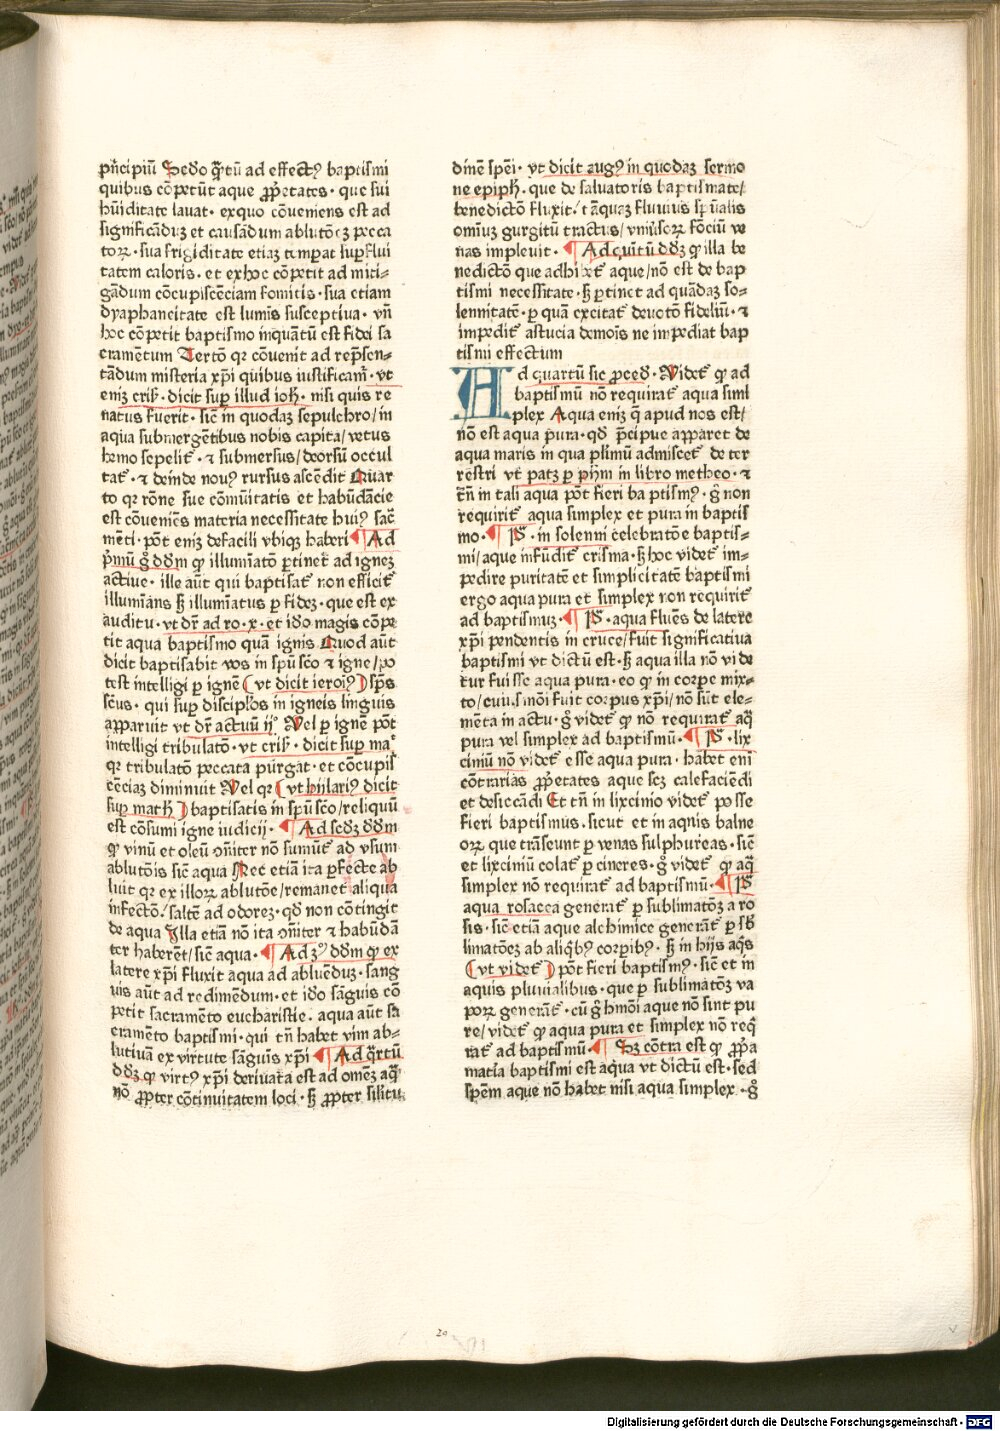 pͥncipiū Sedo qͣtū ad effectꝰ baptismi
quibus cōpetūt aque ꝓpͥetates · que sui
hūiditate lauat · exquo cōueniens est ad
significādūꝫ et causādum ablutōeꝫ pecca
toꝝ · sua frigiditate etiaꝫ tempat supͥflui
tatem caloris · et ex hoc cōpetit ad miti-
gādum cōcupiscēciam fomitis · sua etiam
dyaphaneitate est lumīs susceptiua · vn̄
hoc cōpetit baptismo inquātū est fidei sa
cramētum Tertō qꝛ cōuenit ad rep̄sen-
tādum misteria xp̄i quibus iustificamͬ · vt
enīꝫ crisꝭ · dicit suꝑ illud ioh̄ · nisi quis re
natus fuerit · sicͣ in quodaꝫ sepulchro / in
aqua submergētibus nobis capita / vetus
homo sepelitͬ · ⁊ submersus / deorsū occul
tatͬ · ⁊ deinde nouꝰ rursus ascēdit Quar
to qꝛ rōne sue cōmūitatis et habūdācie
est cōueniēs materia necessitate huiꝰ sacͣ
mēti · pōt eniꝫ de facili vbiqꝫ haberi Ad
pͥmū gͦ dōm ꝙ illumīatō ꝑtinet ad igneꝫ
actiue · ille aūt qui baptisatͬ non efficitͬ
illuminās sꝫ illumīatus ꝑ fideꝫ · que est ex
auditu · vt drͬ ad ro · x · et iōo magis cōpe
tit aqua baptismo quā ignis Quod aūt
dicit baptisabit vos in spū sc̄o ⁊ igne / po
test intelligi ꝑ ignē ( vt dicit ieroīꝰ ) sp̄s
sc̄us · qui suꝑ discip̄los in igneis linguis
apparuit vt drͬ actuū ijͦ Vel ꝑ ignē pōt
intelligi tribulatō · vt crisꝭ · dicit suꝑ maͭ
qꝛ tribulatō peccata purgat · et cōcupis
cēciaꝫ diminuit Vel qꝛ ( vt hylariꝰ dicit
suꝑ math̄ ) baptisatis in spū sc̄o / reliquū
est cōsumi igne iudicij · Ad sedꝫ dōm
ꝙ vinū et oleū ꝯīter nō sumūtͬ ad vsum
ablutōis sicͣ aqua Nec etiā ita ꝑfecte ab
luit qꝛ ex illoꝝ ablutōe / remanet aliqua
infectō · saltē ad odoreꝫ · qd̄ non cōtingit
de aqua Illa etiā nō ita ꝯīter ⁊ habūdā
ter haberētͬ / sicͣ aqua · Ad ȝꝰ dōm ꝙ ex
latere xp̄i fluxit aqua ad abluēduꝫ · sang
uis aūt ad redimēdum · et iōo sāguis cō
petit sacramēto eucharistie · aqua aūt sa
cramēto baptismi · qui tn̄ habet vim ab-
lutiuā ex virtute sāguis xp̄i Ad qͣrtū
dōꝫ ꝙ virtꝰ xp̄i deriuata est ad omēꝫ aqͣꝫ
nō ꝓpter cōtinuitatem loci · sꝫ ꝓpter silitu
dinē spēi · vt dicit augꝰ in quodaꝫ sermo
ne epiph̄ · que de saluatoris baptismate /
benedictō fluxit / tāquaꝫ fluuius spūalis
omīuꝫ gurgitū tractus / vniuīsoꝝ fōciū ve
nas impleuit · Ad quītū dōꝫ ꝙ illa be
nedictō que adhibetͬ aque / nō est de bap
tismi necessitate · sꝫ ꝑtinet ad quādaꝫ so-
lennitatē · ꝑ quā excitatͬ deuotō fideliū · ⁊
impeditͬ astucia demoīs ne impediat bap
tismi effectum
Ad quartū sic ꝓceđ · Videtͬ ꝙ ad
baptismū nō requiratͬ aqua simͥ
plex Aqua eniꝫ q̄ apud nos est /
nō est aqua pura · qd̄ p̄cipue apparet de
aqua maris in qua plīmū admiscetͬ de ter
restri vt patꝫ ꝑ pħm in libro metheo · ⁊
tn̄ in tali aqua pōt fieri baptismꝰ · gͦ non
requiritͬ aqua simplex et pura in baptis
mo · P̄ · in solenni celebratōe baptis-
mi / aque infūditͬ crisma · sꝫ hoc videtͬ im-
pedire puritatē et simplicitatē baptismi
ergo aqua pura et simplex non requiritͬ
ad baptismuꝫ · P̄ · aqua fluēs de latere
xp̄i pendentis in cruce / fuit significatiua
baptismi vt dictū est · sꝫ aqua illa nō vide
tur fuisse aqua pura · eo ꝙ in corpe mix-
to / cuiusmōi fuit corpus xp̄i / nō sūt ele-
mēta in actu · gͦ videtͬ ꝙ nō requiratͬ aqͣ
pura vel simplex ad baptismū · P̄ · lix
ciuiū nō videtͬ esse aqua pura · habet eniꝫ
cōtrarias ꝓpͥetates aque scꝫ calefaciēdi
et desiccādi Et tn̄ in lixciuio videtͬ posse
fieri baptismus · sicut et in aquis balne
oꝝ que trāseunt ꝑ venas sulphureas · sicͣ
et lixciuiū colatͬ ꝑ cineres · gͦ videtͬ ꝙ aqͣ
simplex nō requiratͬ ad baptismū · P̄
aqua rosacea generatͬ ꝑ sublimatōꝫ a ro
sis · sicͣ etiā aque alchimice generātͬ ꝑ sb̄
limatōeꝫ ab aliqͥbꝰ corpibꝰ · sꝫ in hijs aqͥs
( vt videtͬ ) pōt fieri baptismꝰ · sicͣ et in
aquis pluuialibus · que ꝑ sublimatōꝫ va
poꝝ generātͬ · cū gͦ hmōi aque nō sint pu
re / videtͬ ꝙ aqua pura et simplex nō reqͥ
ratͬ ad baptismū · Sꝫ cōtra est ꝙ ꝓp̄a
matīa baptismi est aqua vt dictū est · sed
spēm aque nō habet nisi aqua simplex · gͦ
20
Digitalisierung gefördert durch die Deutsche Forschungsgemeinschaft · DFG